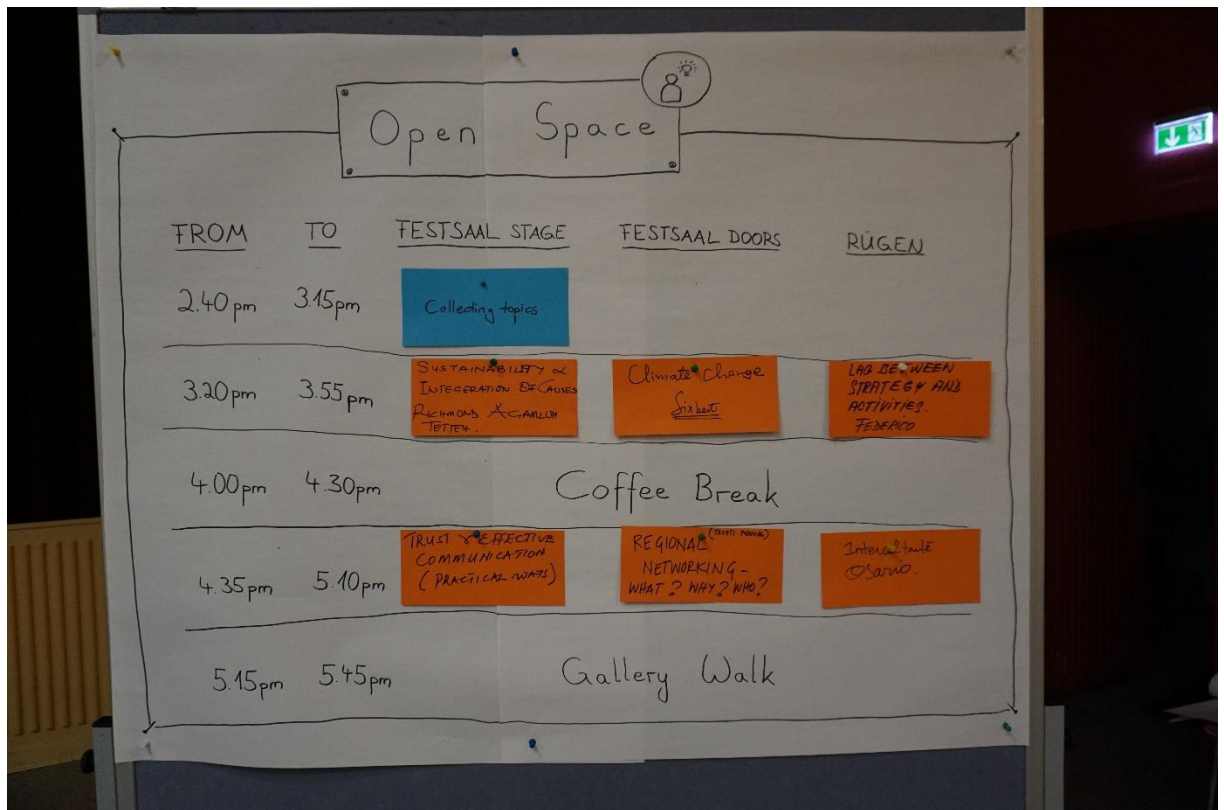 Open Space
FROM TO FESTSAAL STAGE FESTSAAL DOORS RÜGEN
2.40pm 3.15pm Collecting topics
3.20pm 3.55pm
SUSTAINABILITY &
INTEGERATION OF CAUSES
RICHMOND
TETTEH.
Climate Change
Sixbert
LAG BETWEEN
STRATEGY AND
ACTIVITIES.
FEDERICO
4.00pm 4.30pm Coffee Break
4.35pm 5.10pm
TRUST & EFFECTIVE
COMMUNICATION
(PRACTICAL WAYS)
REGIONAL
NETWORKING -
WHAT? WHY? WHO?
Osario.
5.15pm 5.45pm Gallery Walk